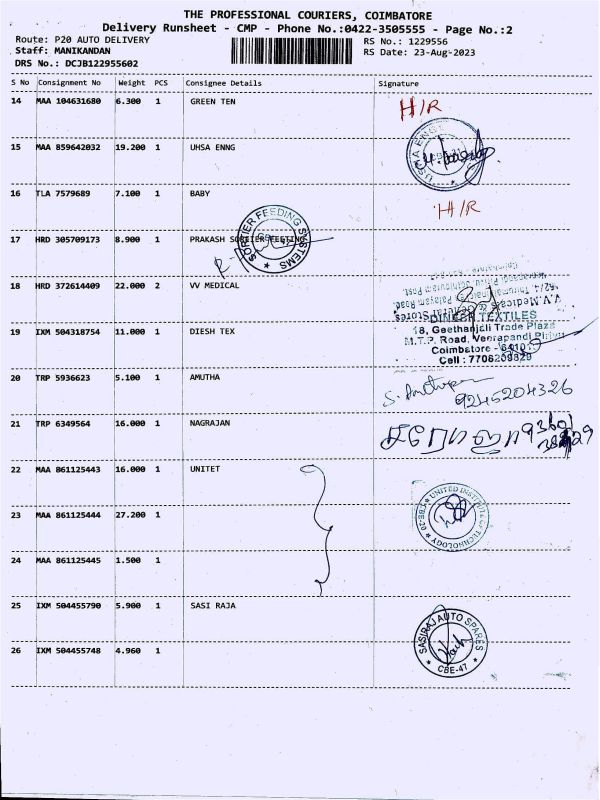 THE PROFESSIONAL COURIERS, COIMBATORE
Delivery Runsheet - CMP - Phone No.:0422-3505555 - Page No.:2
Route: P20 AUTO DELIVERY RS No.: 1229556
Staff: MANIKANDAN RS Date: 23-Aug-2023
DRS No.: DCJB122955602
S No Consignment No Weight PCS Consignee Details Signature
14 MAA 104631680 6.300 1 GREEN TEN H/R
15 MAA 859642032 19.200 1 UHSA ENNG
USMA ENG
16 TLA 7579689 7.100 1 BABY H/R
SORTIER FEEDING SYSTEMS
17 HRD 305709173 8.900 1 PRAKASH SORTIER FEETING
18 HRD 372614409 22.000 2 VV MEDICAL
V.V.Medicals General Stores
DINESH TEXTILES
19 IXM 504318754 11.000 1 DIESH TEX
18, Geethanjali Trade Plaza
M.T.P. Road, Veerapandi Pirivu
Coimbatore - 641019
Cell : 7708209829
20 TRP 5936623 5.100 1 AMUTHA
9245204326
21 TRP 6349564 16.000 1 NAGRAJAN
22 MAA 861125443 16.000 1 UNITET
UNITED INSTITUTE OF TECHNOLOGY CBE-20
23 MAA 861125444 27.200 1
24 MAA 861125445 1.500 1
25 IXM 504455790 5.900 1 SASI RAJA
SASIRAJ AUTO SPARES
CBE-47
26 IXM 504455748 4.960 1